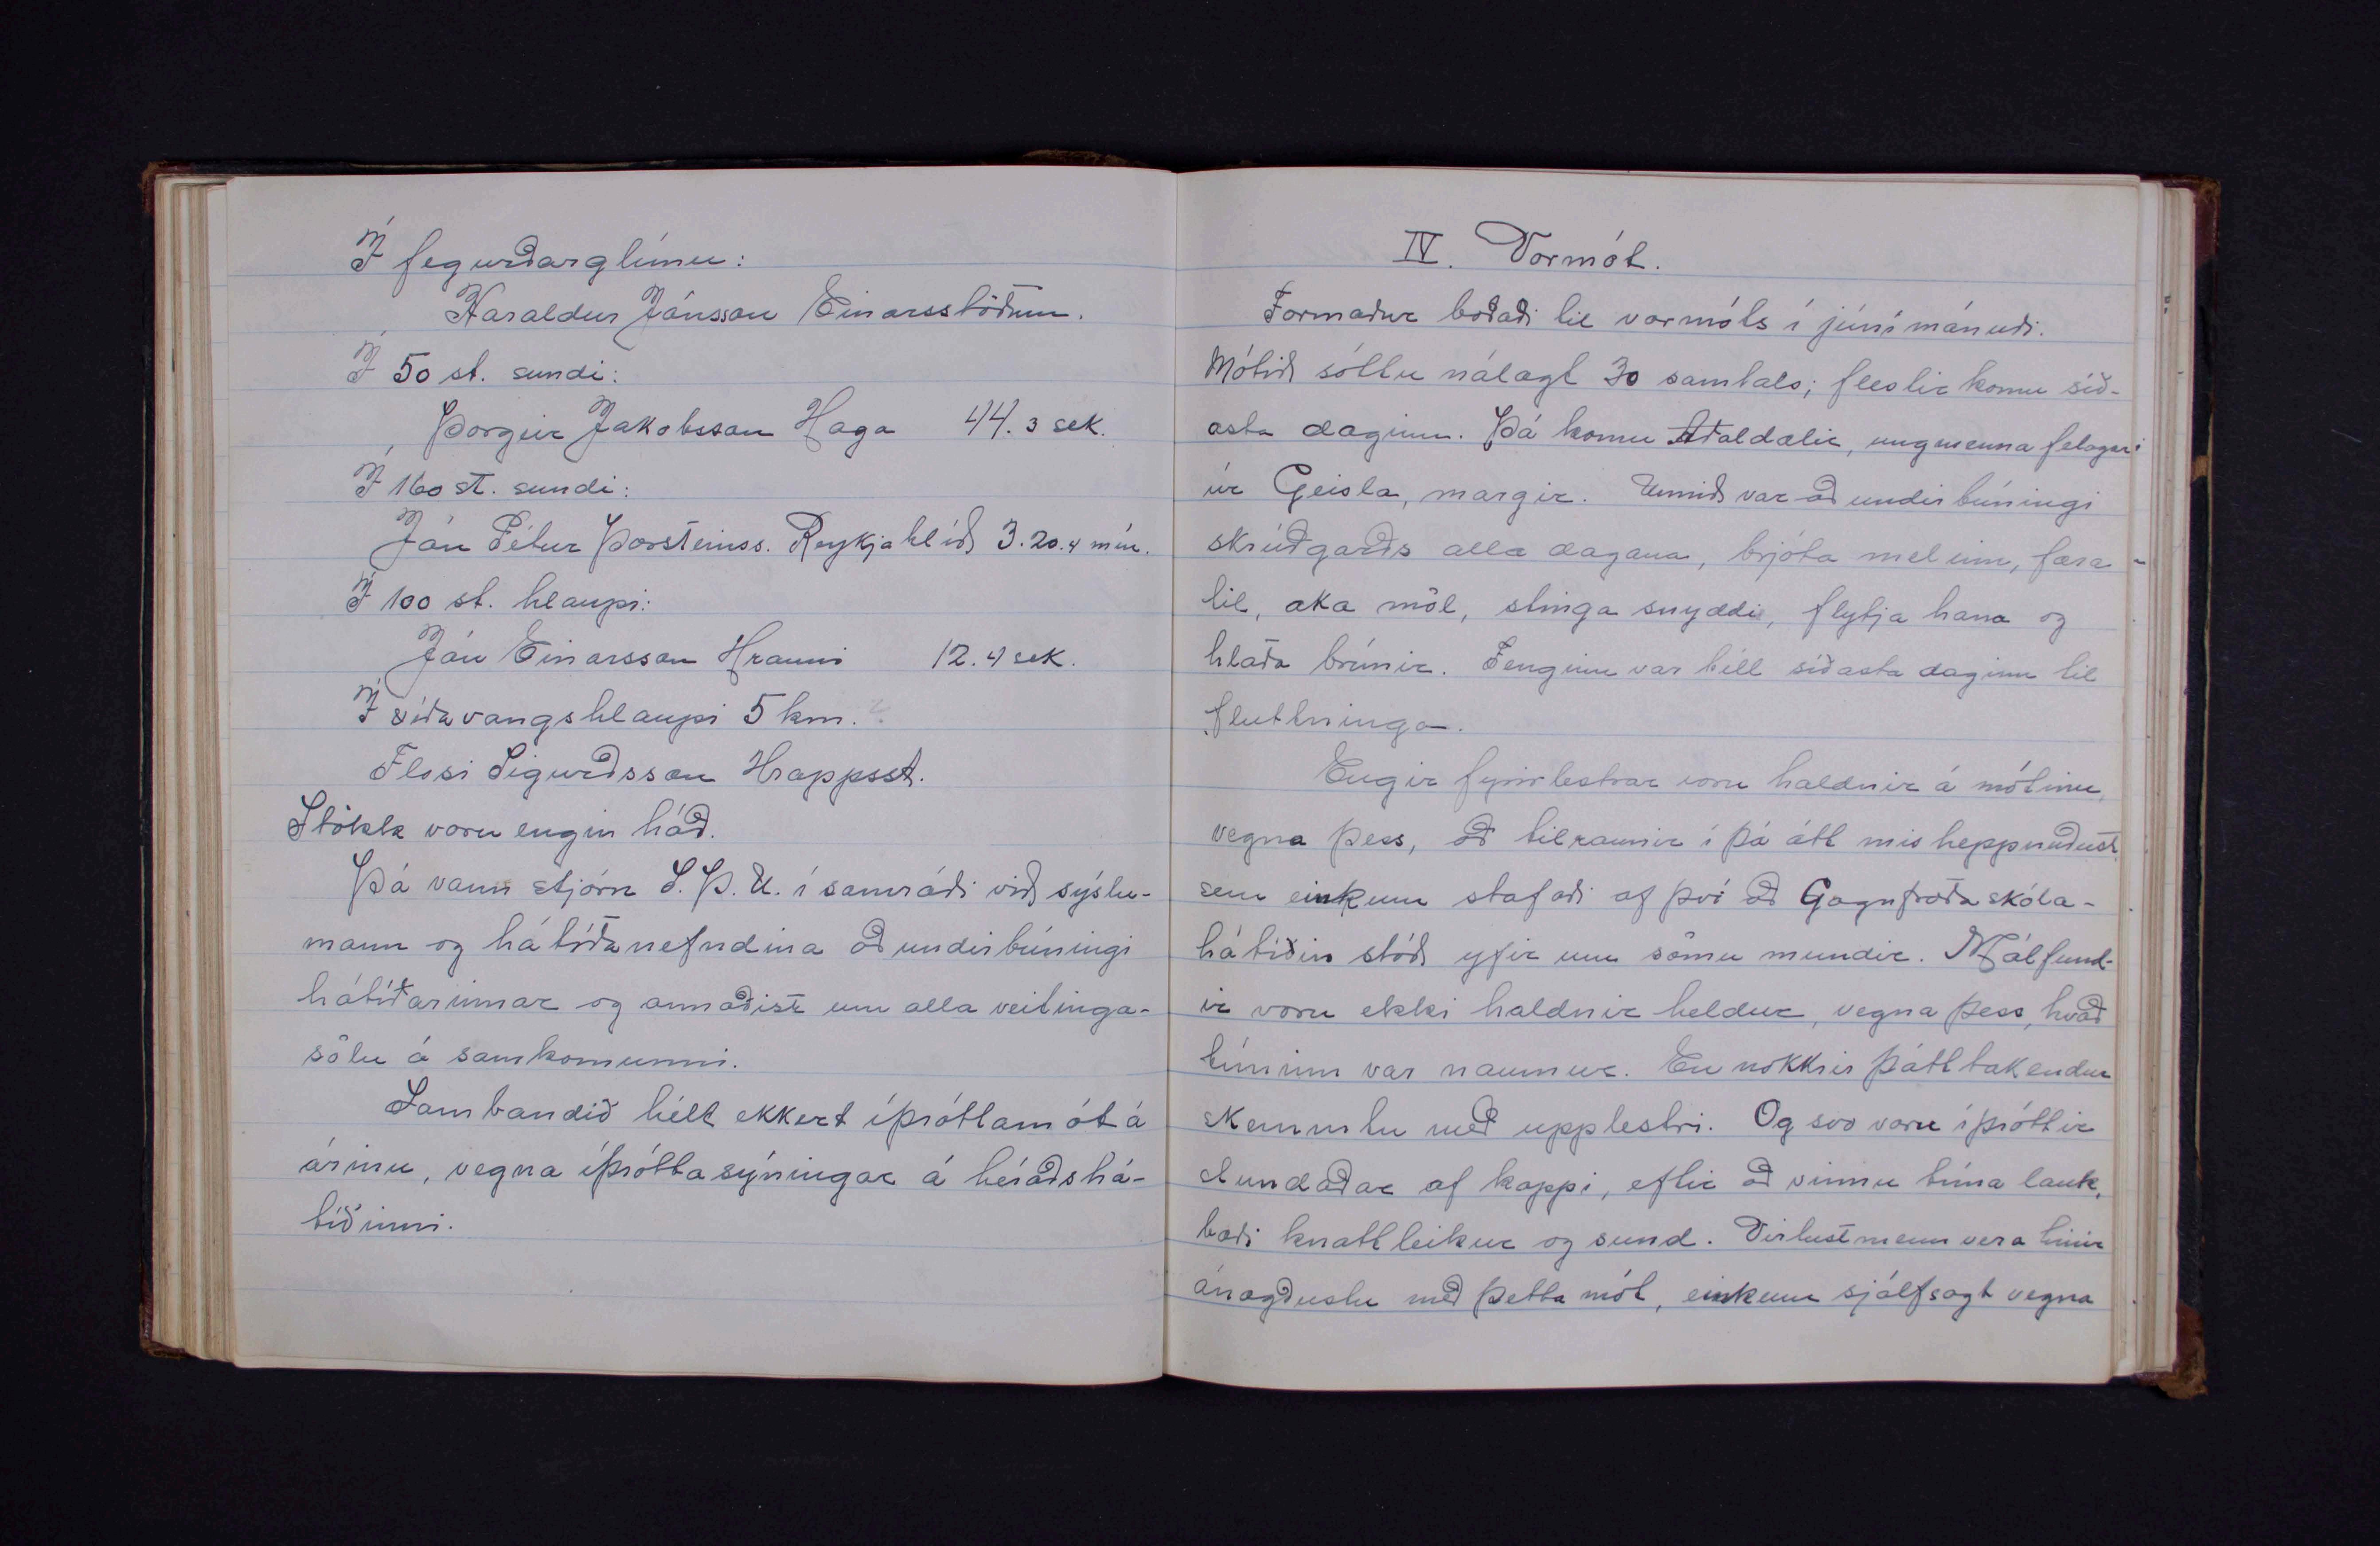 Í fegurðarglímu:
Haraldur Jónsson Einarsstöðum.
Í 50 st. sundi:
Þorgeir Jakobsson Haga 44.3 sek.
Í 160 st. sundi:
Jón Pétur Þorsteinss. Reykjahlíð 3.20.4 mín.
Í 100 st. hlaupi:
Jón Einarsson Hrauni 12.4 sek.
Í víðavangshlaupi 5 km.
Flosi Sigurðsson Hrappsst.
Stökk voru engin háð.
Þá vann stjórn S.Þ.U. í samráði við sýslu-
mann og hátíðanefndina að undirbúningi
hátíðarinnar og annaðist um alla veitinga-
sölu á samkomunni.
Sambandið hélt ekkert íþróttamót á
árinu, vegna íþróttasýningar á héraðshá-
tíðinni.
IV. Vormót.
Formaður boðaði til vormóts í júnímánuði.
Mótið sóttu nálægt 30 samtals; flestir komu síð-
asta daginn. Þá komu Aðaldælir, ungmennafélagar
úr Geisla, margir. Unnið var að undirbúningi
skrúðgarðs alla dagana, brjóta melinn, færa
til, aka möl, stinga snyddu, flytja hana og
hlaða brúnir. Fenginn var bíll síðasta daginn til
fluttninga.
Engir fyrirlestrar voru haldnir á mótinu,
vegna þess, að tilraunir í þá átt misheppnuðust
sem einkum stafaði af því að Gagnfræðaskóla-
hátíðin stóð yfir um sömu mundir. Málfund-
ir voru ekki haldnir heldur, vegna þess, hvað
tíminn var naumur. En nokkrir þátttakendur
skemmtu með upplestri. Og svo voru íþróttir
stundaðar af kappi, eftir að vinnu tíma lauk,
bæði knattleikur og sund. Virtust menn vera hinir
ánægðustu með þetta mót, einkum sjálfsagt vegna